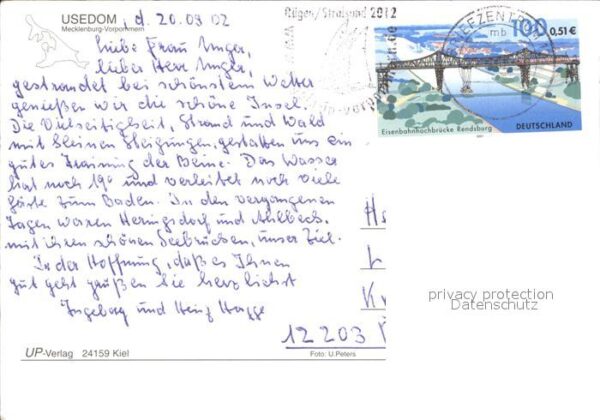 USEDOM
Mecklenburg-Vorpommern
, d. 20.09.02
Liebe Frau Unger,
lieber Herr Unger,
gestrandet bei schönstem Wetter
genießen wir die schöne Insel.
Die Vielseitigkeit, Strand und Wald
mit kleinen Steigungen, gestatten uns ein
gutes Training der Beine. Das Wasser
hat noch 19° und verleitet noch viele
Gäste zum Baden. In den vergangenen
Tagen waren Heringsdorf und Ahlbeck
mit ihren schönen Seebrücken, unser Ziel.
In der Hoffnung, daß es Ihnen
gut geht grüßen Sie herzlichst
Ingeborg und Heinz
UP-Verlag 24159 Kiel
Foto: U.Peters
Rügen/Stralsund 2012
BRIEFZENTRUM
mb
100 0,51€
Eisenbahnhochbrücke Rendsburg
DEUTSCHLAND
H
L
K
12203
privacy protection
Datenschutz